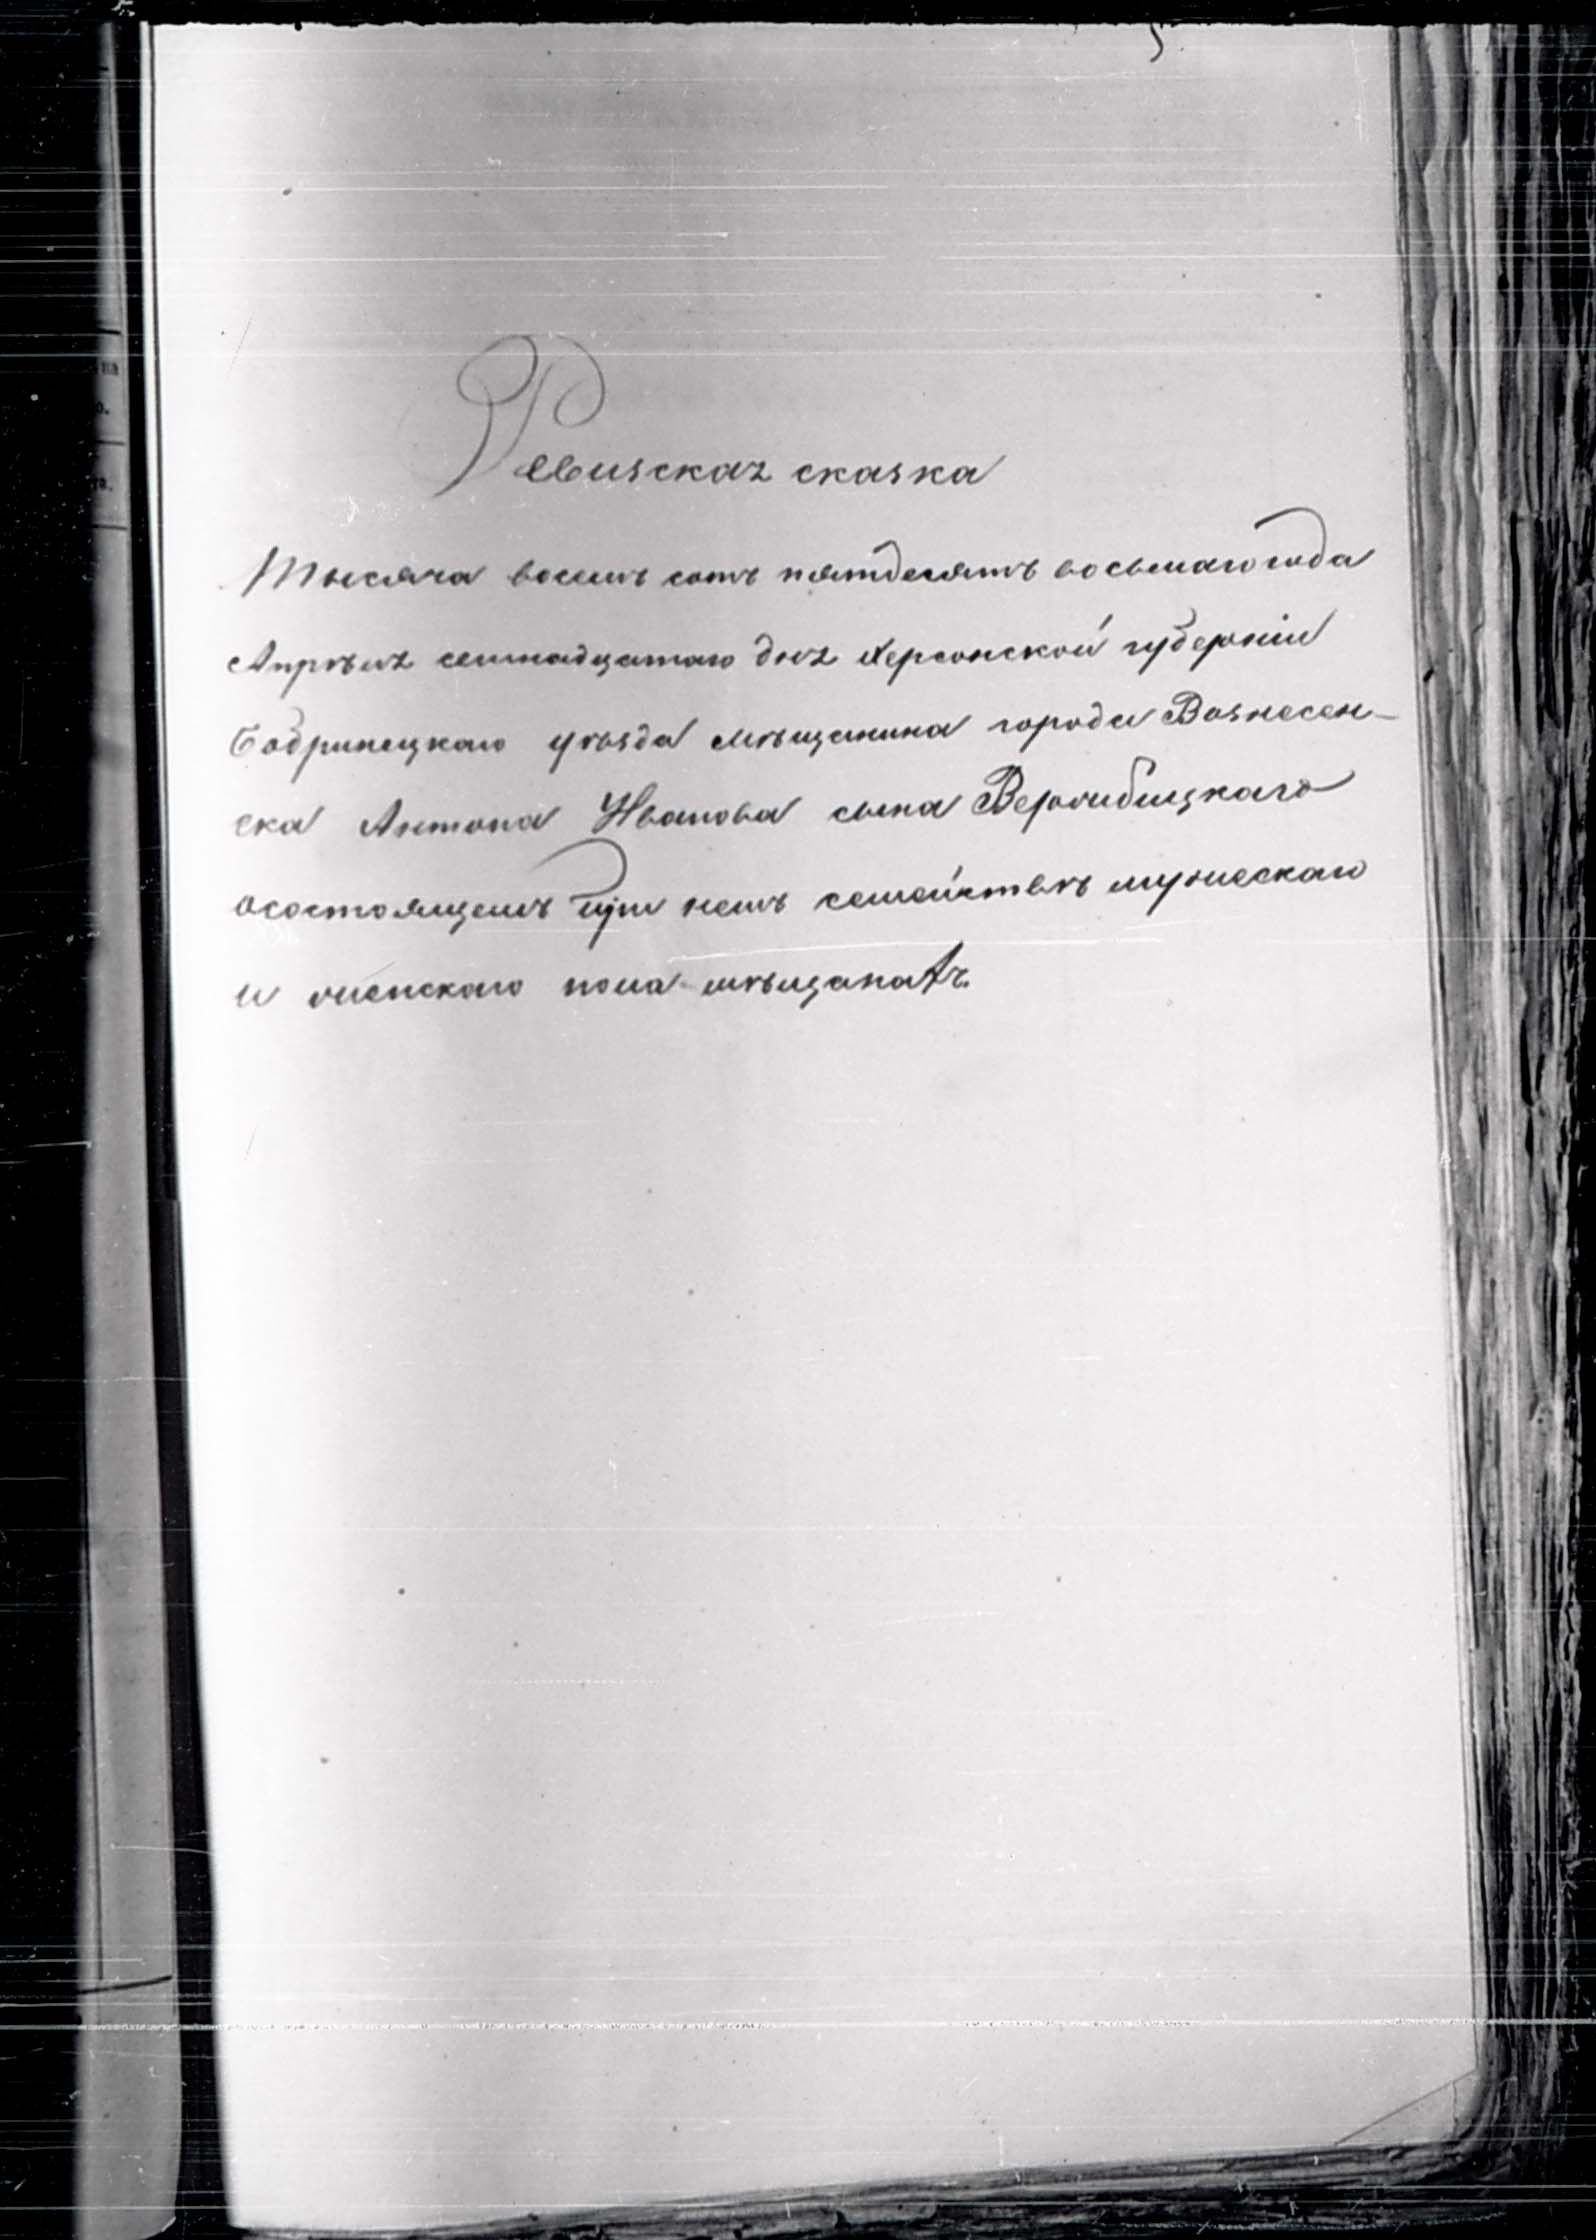 Ревизская сказка
Тысяча восемь сотъ пятдесятъ восьмаго года
Апрѣля семнадцатаго дня Херсонской губерніи
Бобринецкаго уѣзда мѣщанина города Вознесен-
ска Антона Иванова сына Вержибицкаго
осостоящемъ при немъ семействѣ мужескаго
и женскаго пола мѣщанахъ.